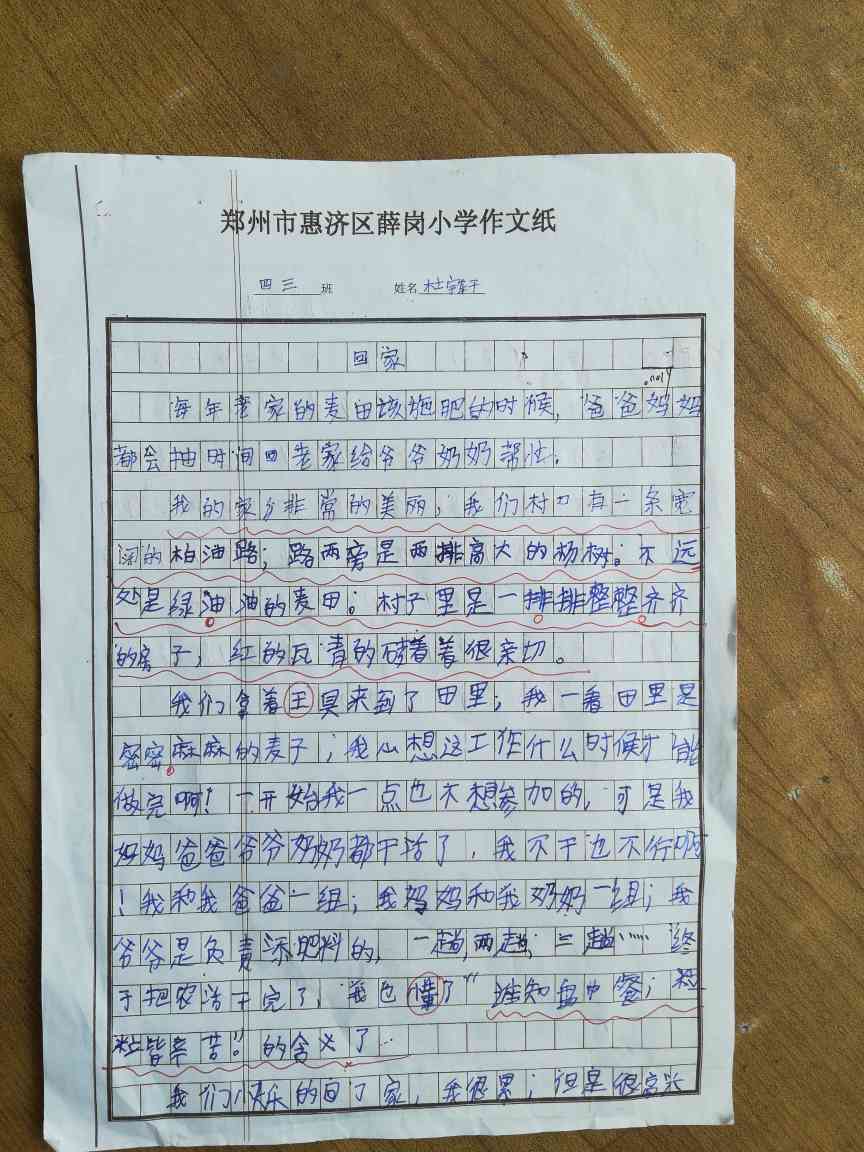 郑州市惠济区薛岗小学作文纸
四三班 姓名杜
回家
每年老家的麦田该施肥的时候,爸爸妈妈
都会抽时间回老家给爷爷奶奶帮忙.
我的家乡非常的美丽,我们村口有一条宽
阔的柏油路;路两旁是两排高大的杨树。不远
处是绿油油的麦田。村子里是一排排整整齐齐
的房子,红的瓦青的砖看着很亲切。
我们拿着王具来到了田里;我一看田里是
密密麻麻的麦子;我心想这工作什么时候才能
做完啊!一开始我一点也不想参加的,可是我
妈妈爸爸爷爷奶奶都干活了,我不干也不行啊
!我和我爸爸一组;我妈妈和我奶奶一组;我
爷爷是负责添肥料的,一趟,两趟,三趟……终
于把农活干完了,我也懂了“谁知盘中餐;粒
粒皆辛苦”的含义了.
我们快乐的回了家,我很累;但是很高兴